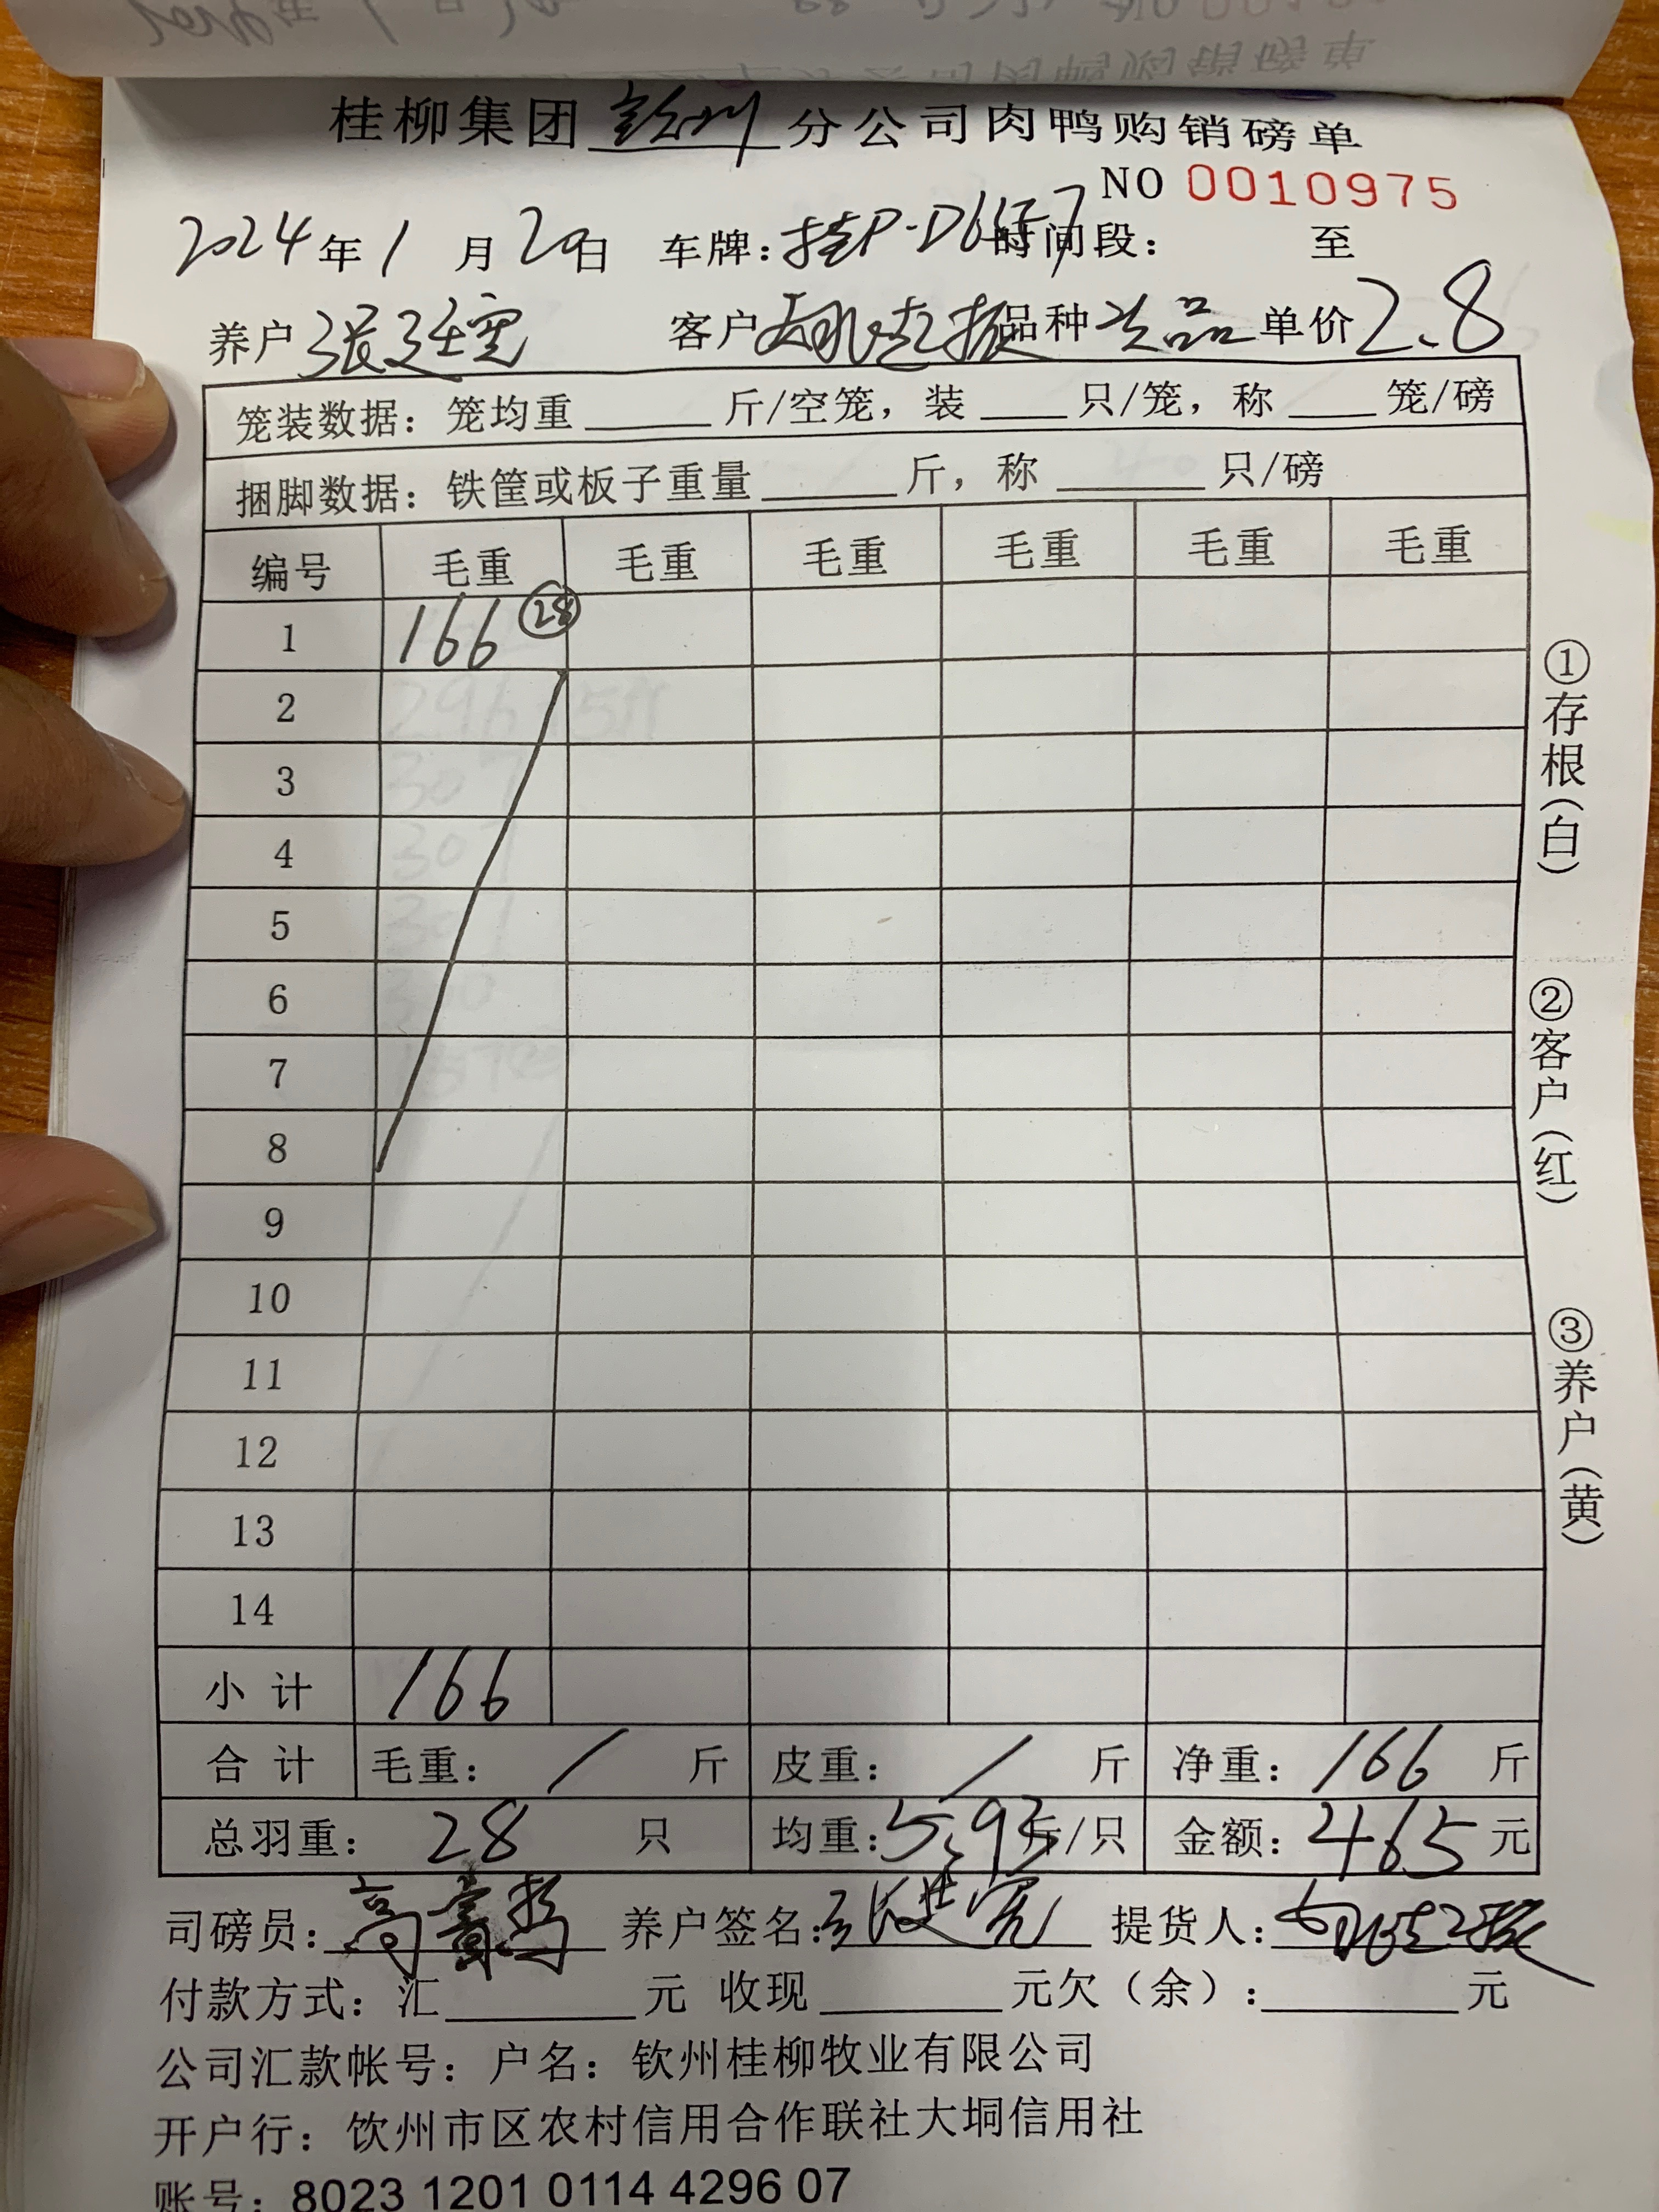 桂柳集团 钦州 分公司肉鸭购销磅单
NO 0010975
2024年1月20日 车牌：桂P·D6 时间段： 至
养户 张 客户 品种 次品 单价 2.8
笼装数据：笼均重____斤/空笼，装___只/笼，称___笼/磅
捆脚数据：铁筐或板子重量____斤，称____只/磅
编号 毛重 毛重 毛重 毛重 毛重 毛重
1 166 ㉘
2
3
4
5
6
7
8
9
10
11
12
13
14
小计 166
合计 毛重： / 斤 皮重： / 斤 净重：166 斤
总羽重：28 只 均重：5.93斤/只 金额：465元
司磅员：高 养户签名：张 提货人：
付款方式：汇____元 收现____元欠（余）：____元
公司汇款帐号：户名：钦州桂柳牧业有限公司
开户行：钦州市区农村信用合作联社大垌信用社
账号：8023 1201 0114 4296 07
①存根（白）
②客户（红）
③养户（黄）